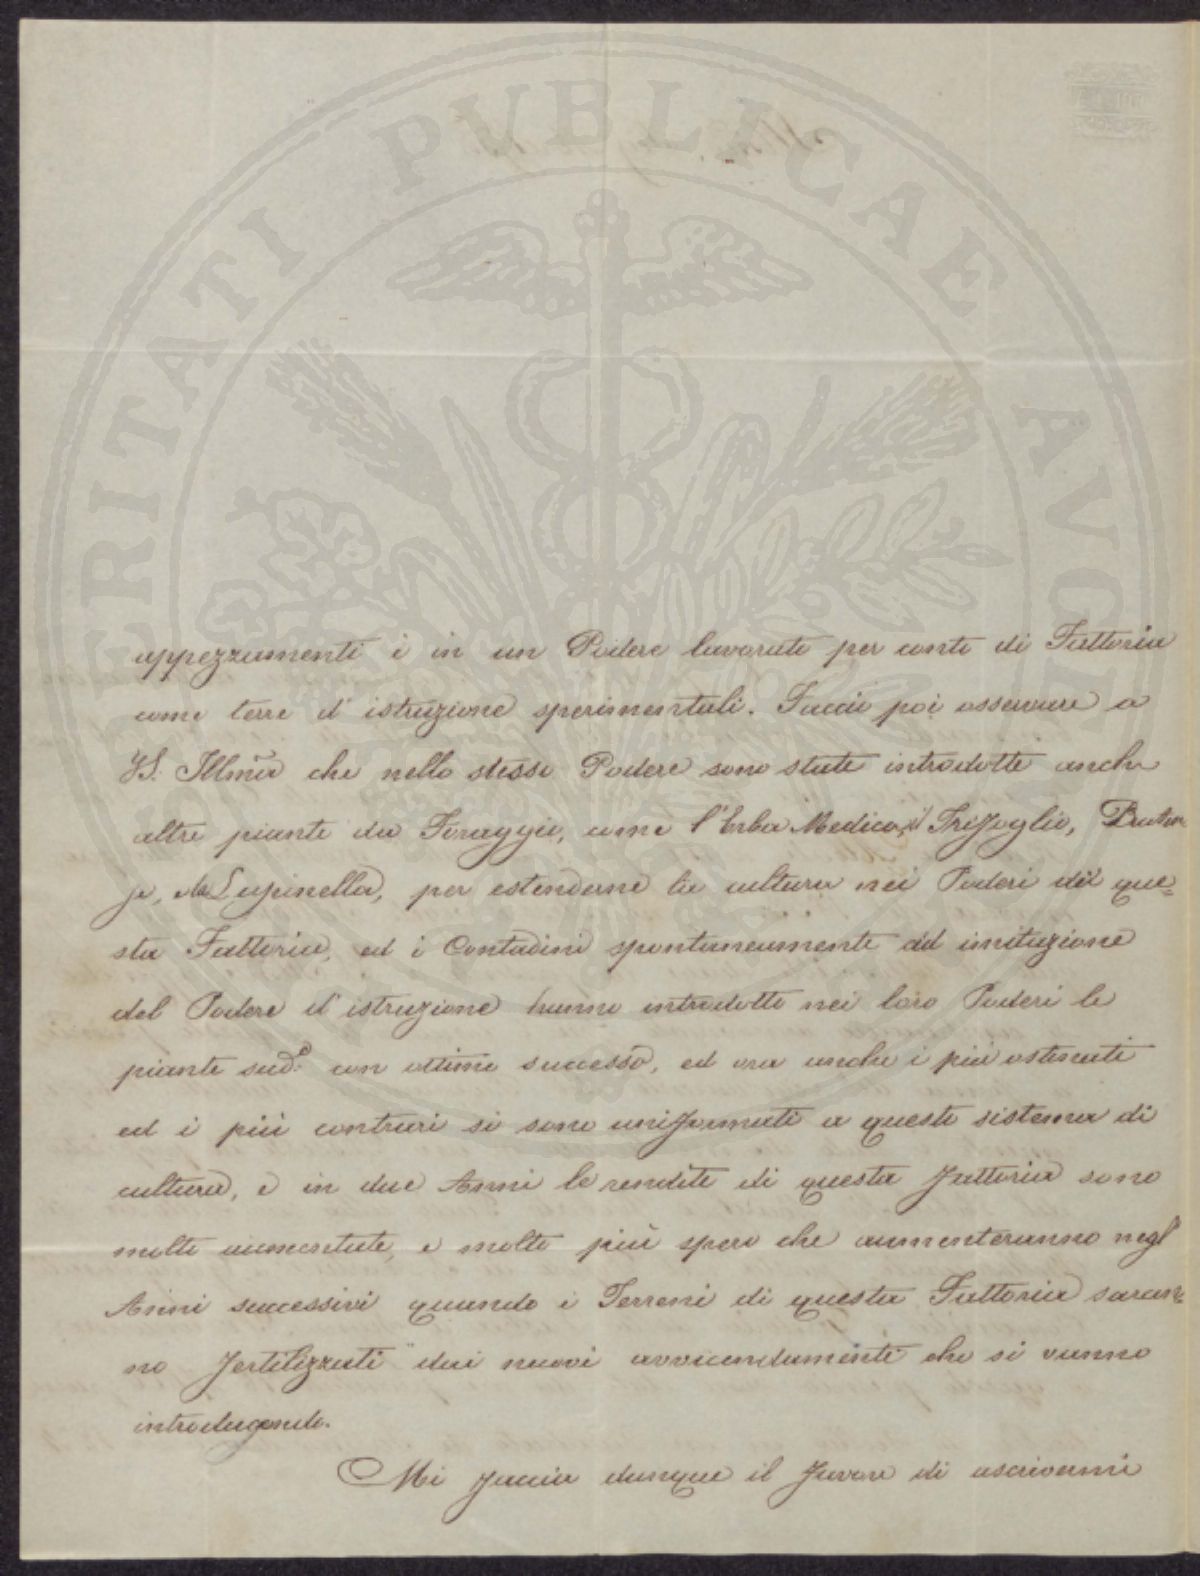 PROSPERITATI PUBLICAE AVGENDAE
appezzamenti i in un Podere lavorato per conto di Fattoria
come terre d'istruzione sperimentali. Faccio poi osservare a
VS. Illma che nello stesso Podere sono state introdotte anche
altre piante da Foraggio, come l'Erba Medica, il Trifoglio,
la Lupinella, per estenderne la cultura nei Poderi di que=
sta Fattoria, ed i Contadini spontaneamente ad imitazione
del Podere d'istruzione hanno introdotto nei loro Poderi le
piante sud.e con ottimo successo, ed ora anche i più ostinati
ed i più contrari si sono uniformati a questo sistema di
cultura, e in due Anni le rendite di questa Fattoria sono
molto aumentate, e molto più spero che aumenteranno negl
Anni successivi quando i Terreni di questa Fattoria saran=
no fertilizzati dai nuovi avvicendamenti che si vanno
introducendo.
Mi faccia dunque il favore di ascrivermi